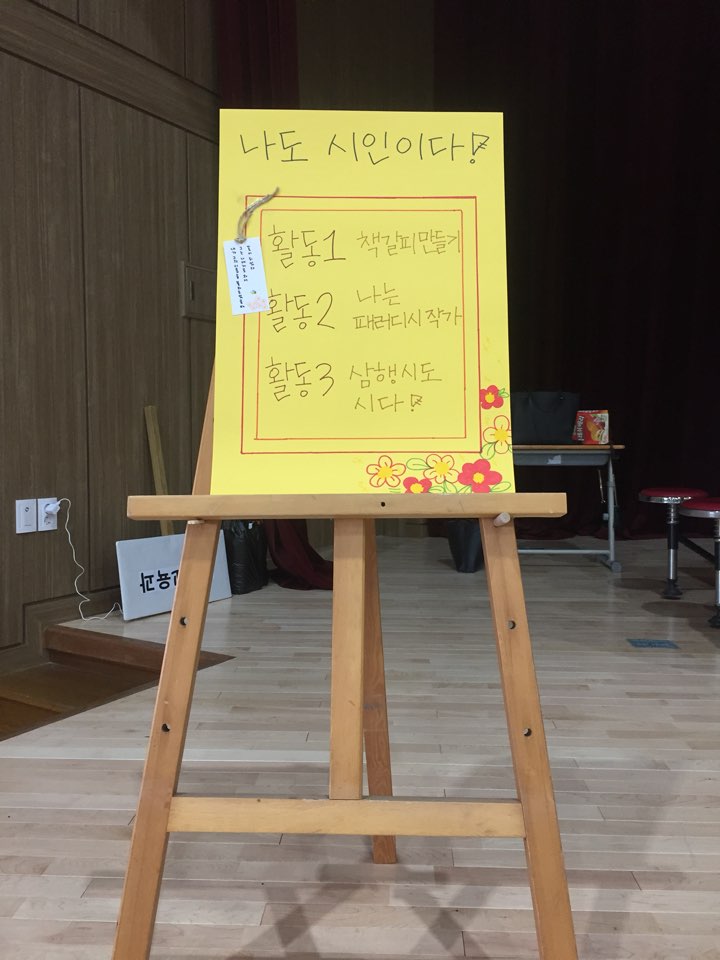 나도 시인이다!
활동1 책갈피 만들기
활동2 나는
패러디시 작가
활동3 삼행시도
시다!